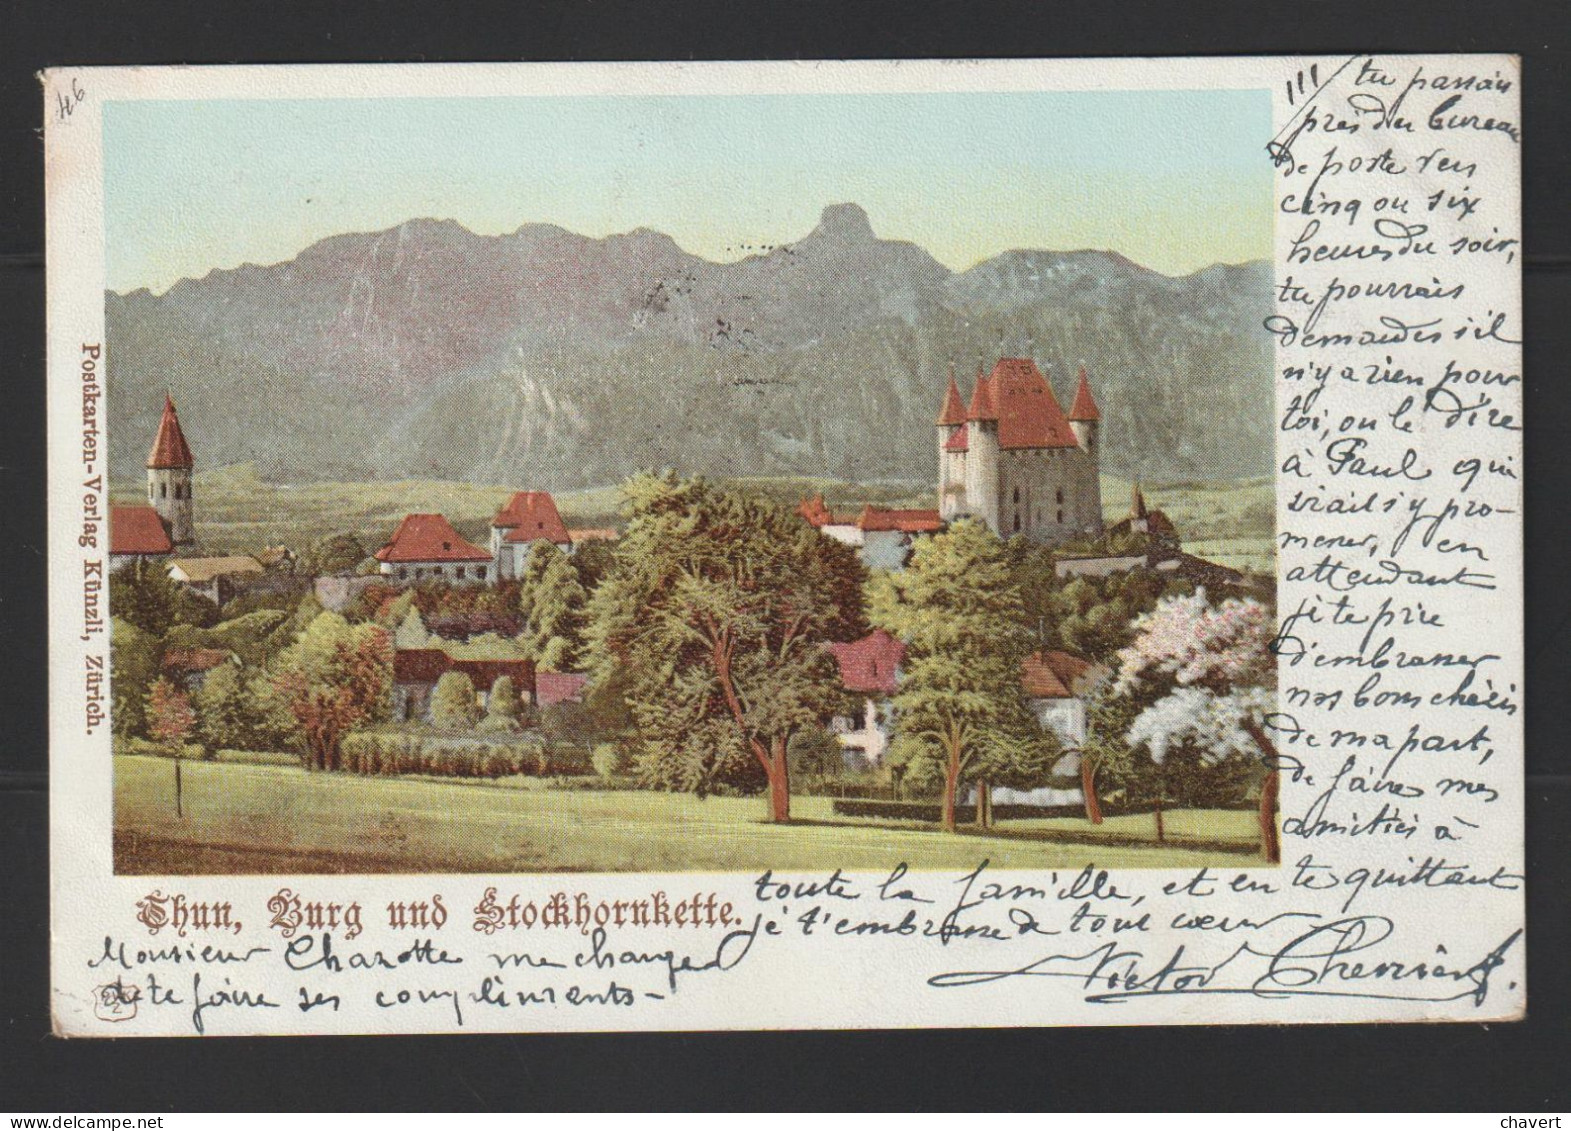 46
111 tu passais
près du bureau
de poste vers
cinq ou six
heures du soir,
tu pourrais
demander s'il
n'y a rien pour
toi, ou le dire
à Paul qui
irait s'y pro-
mener, en
attendant
je te prie
d'embrasser
nos bons chéris
de ma part,
de faire mes
amitiés à
toute la famille, et en te quittant
je t'embrasse de tout cœur
Victor
Thun, Burg und Stockhornkette.
Monsieur Chazotte me charge
de te faire ses compliments-
Postkarten-Verlag Künzli, Zürich.
chavert